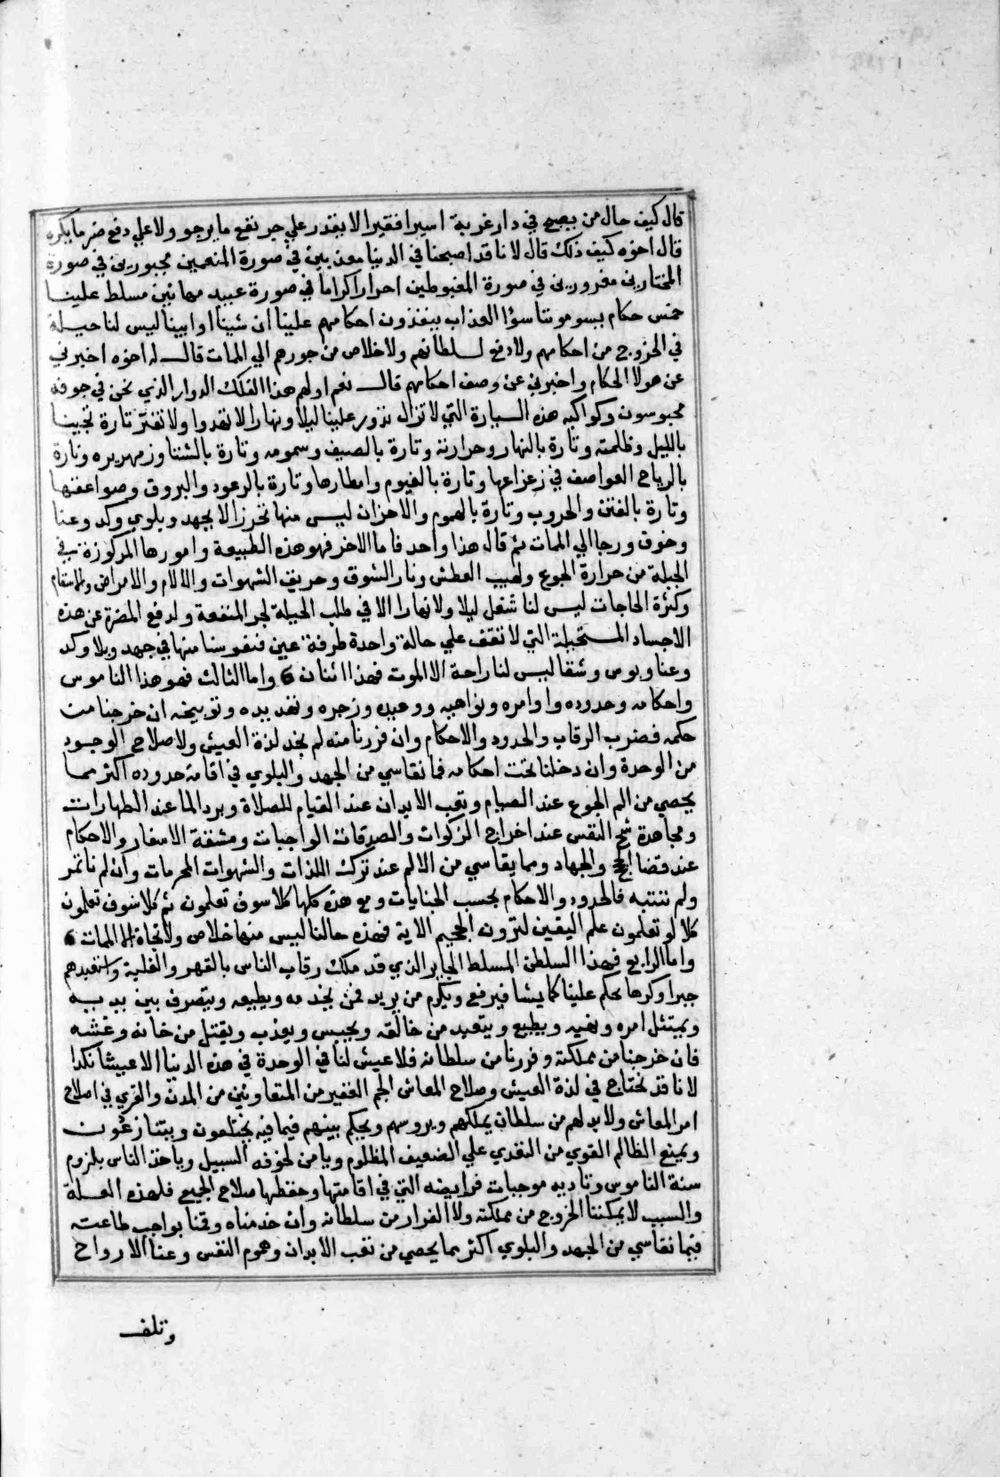 قال كيف حال من يصبح في دار غربة اسيرا فقيرا لا يقدر علي جر نفع ما يرجو ولا علي دفع ضر ما يكره
قال اخوه كيف ذلك قال لانا قد اصبحنا في الدنيا معذبين في صورة المنعمين مجبورين في صورة
المختارين مغرورين في صورة المغبوطين احرارا كراما في صورة عبيد مهانين مسلط علينا
خمس حكام يسومونا سؤ العذاب ينفذون احكامهم علينا ان شينا او ابينا ليس لنا حيلة
في الخروج من احكامهم ولا دفع لسلطانهم ولا خلاص من جورهم الي الممات قال له اخوه اخبرني
عن هولا الحكام واخبرني عن وصف احكامهم قال نعم اولهم هذا الفلك الدوار الذي نحن في جوفه
محبوسون وكواكبه هذه السيارة التي لا تزال تدور علينا ليلا ونهارا لا تهدوا ولا تفتر تارة تجينا
بالليل وظلمته وتارة بالنهار وحرارته وتارة بالصيف وسمومه وتارة بالشتا وزمهريره وتارة
بالرياح العواصف في زعزاعها وتارة بالغيوم وامطارها وتارة بالرعود والبروق وصواعقها
وتارة بالفتن والحروب وتارة بالهموم والاحزان ليس منها تحرز الا بجهد وبلوي وكد وعنا
وخوف ورجا الي الممات ثم قال هذا واحد فاما الاخر فهو هذه الطبيعة وامورها المركوزة في
الجبلة من حرارة الجوع ولهيب العطش ونار الشوق وحريق الشهوات والالام والامراض والاسقام
وكثرة الحاجات ليس لنا شغل ليلا ولا نهارا الا في طلب الحيلة لجر المنفعة ولدفع المضرة عن هذه
الاجساد المستحيلة التي لا تقف علي حالة واحدة طرفة عين فنفوسنا منها في جهد وبلا وكد
وعنا وبوس وشقا ليس لنا راحة الا الموت فهذا اثنان واما الثالث فهو هذا الناموس
واحكامه وحدوده واوامره ونواهيه ووعيده وزجره وتهديده وتوبيخه ان خرجنا من
حكمه فضرب الرقاب والحدود والاحكام وان فررنا منه لم نجد لذة العيش ولا صلاح الوجود
من الوحدة وان دخلنا تحت احكامه فما نقاسي من الجهد والبلوي في اقامة حدوده اكثر مما
يحصي من الم الجوع عند الصيام وتعب الابدان عند القيام للصلاة وبرد الما عند الطهارات
ومجاهدة شح النفس عند اخراج الزكوات والصدقات الواجبات ومشقة الاسفار والاحكام
عند قضا الحج والجهاد وما يقاسي من الالم عند ترك اللذات والشهوات المحرمات وان لم ناتمر
ولم ننتيه فالحدود والاحكام بحسب الجنايات ومع هذه كلها كلا سوف تعلمون ثم كلا سوف تعلمون
كلا لو تعلمون علم اليقين لترون الجحيم الاية فهذه حالنا ليس منها خلاص ولا نجاة الي الممات
واما الرابع فهذا السلطن المسلط الجاير الذي قد ملك رقاب الناس بالقهر والغلبة واستعبدهم
جبرا وكرها يحكم علينا كما يشا فيرفع ويكرم من يريد فمن يخدمه ويطيعه ويتصرف بين يديه
ويمتثل امره ونهيه ويطيع ويتعبد من خالفه ويحبس ويعذب ويقتل من خانه وغشه
فان خرجنا من مملكته وفررنا من سلطانه فلا عيش لنا في الوحدة في هذه الدنيا الا عيشا نكدا
لانا قد نحتاج في لذة العيش وصلاح المعاش الجم الغفير من المتعاونين من المدن والقري في اصلاح
امر المعاش ولا بد لهم من سلطان يملكهم ويروسهم ويحكم بينهم فيما فيه يختلعون ويتنازعون
ويمنع الظالم القوي من التعدي علي الضعيف المظلوم ويامن لخوفه السبيل وياخذ الناس بلزوم
سنة الناموس وتاديه موجبات فرايضه التي في اقامتها وحفظها صلاح الجميع فلهذه العلة
والسبب لا يمكننا الخروج من مملكته ولا الفرار من سلطانه وان خدمناه وقمنا بواجب طاعته
فما نقاسي من الجهد والبلوي اكثر مما يحصي من تعب الابدان وهموم النفس وعنا الارواح
وتلف